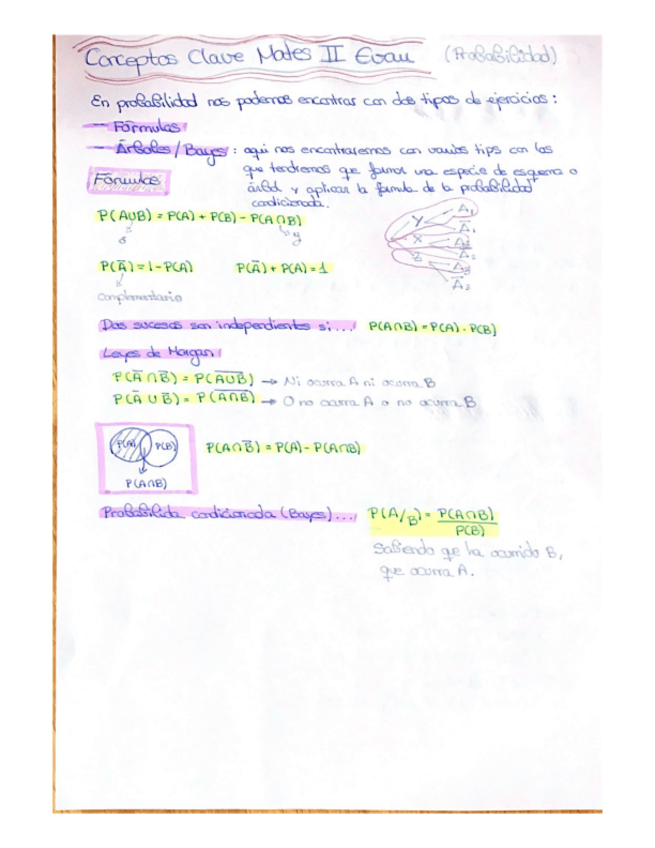 Conceptos Clave Mates II Evau (Probabilidad)
En probabilidad nos podemos encontrar con dos tipos de ejercicios:
— Fórmulas
— Árboles/Bayes: aquí nos encontraremos con varios tips con los
que tendremos que formar una especie de esquema o
árbol y aplicar la fórmula de la probabilidad
condicionada.
Fórmulas
P(A∪B) = P(A) + P(B) - P(A∩B)
o
y
P(Ā) = 1 - P(A) P(Ā) + P(A) = 1
complementario
Y A₁
Ā₁
X A₂
Ā₂
Z A₃
Ā₃
Dos sucesos son independientes si... P(A∩B) = P(A) · P(B)
Leyes de Morgan
P(Ā ∩ B̅) = P(A̅∪̅B̅) → Ni ocurra A ni ocurra B
P(Ā ∪ B̅) = P(A̅∩̅B̅) → O no ocurra A o no ocurra B
P(A) P(B)
P(A∩B)
P(A∩B̅) = P(A) - P(A∩B)
Probabilida condicionada (Bayes)... P(A/B) = P(A∩B)
P(B)
Sabiendo que ha ocurrido B,
que ocurra A.